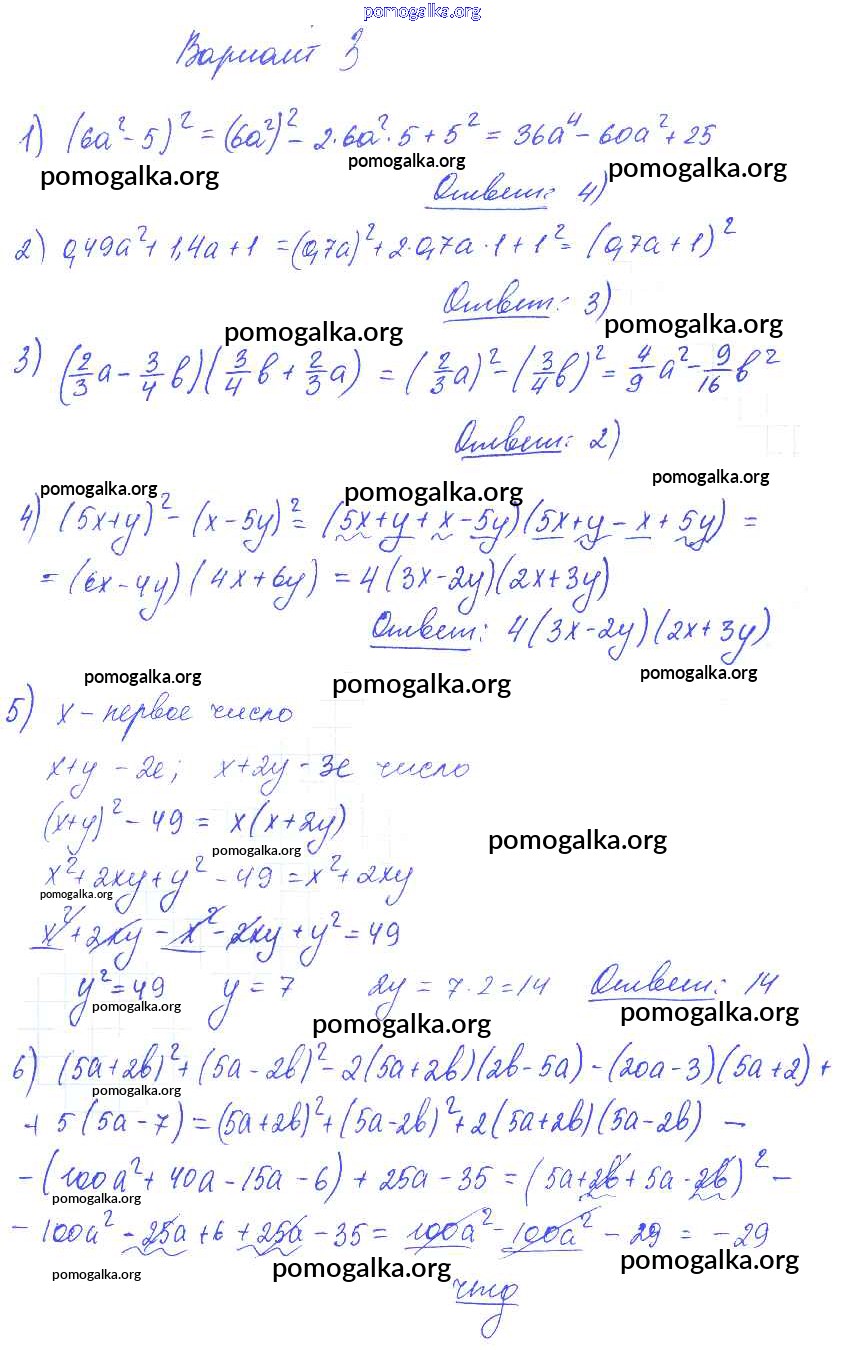 pomogalka.org
Вариант 3
1) (6a² - 5)² = (6a²)² - 2·6a²·5 + 5² = 36a⁴ - 60a² + 25
pomogalka.org pomogalka.org pomogalka.org
Ответ: 4)
2) 0,49a² + 1,4a + 1 = (0,7a)² + 2·0,7a·1 + 1² = (0,7a + 1)²
Ответ: 3)
pomogalka.org pomogalka.org
3) (2/3 a - 3/4 b)(3/4 b + 2/3 a) = (2/3 a)² - (3/4 b)² = 4/9 a² - 9/16 b²
Ответ: 2)
pomogalka.org pomogalka.org pomogalka.org
4) (5x+y)² - (x-5y)² = (5x+y+x-5y)(5x+y-x+5y) =
= (6x-4y)(4x+6y) = 4(3x-2y)(2x+3y)
Ответ: 4(3x-2y)(2x+3y)
pomogalka.org pomogalka.org pomogalka.org
5) x - первое число
x+y - 2е; x+2y - 3е число
(x+y)² - 49 = x(x+2y)
pomogalka.org pomogalka.org
x² + 2xy + y² - 49 = x² + 2xy
pomogalka.org
x² + 2xy - x² - 2xy + y² = 49
y² = 49 y = 7 2y = 7·2 = 14 Ответ: 14
pomogalka.org pomogalka.org pomogalka.org
6) (5a+2b)² + (5a-2b)² - 2(5a+2b)(2b-5a) - (20a-3)(5a+2) +
pomogalka.org
+ 5(5a-7) = (5a+2b)² + (5a-2b)² + 2(5a+2b)(5a-2b) -
- (100a² + 40a - 15a - 6) + 25a - 35 = (5a+2b+5a-2b)² -
pomogalka.org
- 100a² - 25a + 6 + 25a - 35 = 100a² - 100a² - 29 = -29
pomogalka.org pomogalka.org pomogalka.org
чтд